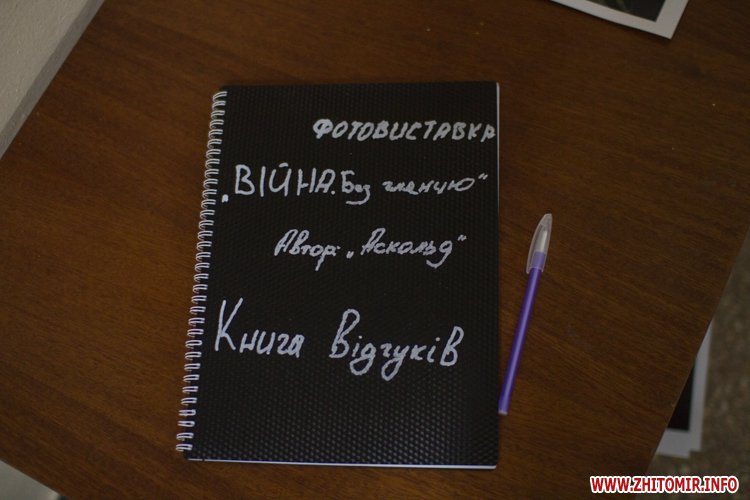 ФОТОВИСТАВКА
„ВІЙНА. Без глянцю“
Автор: „Аскольд“
Книга Відгуків
WWW.ZHITOMIR.INFO